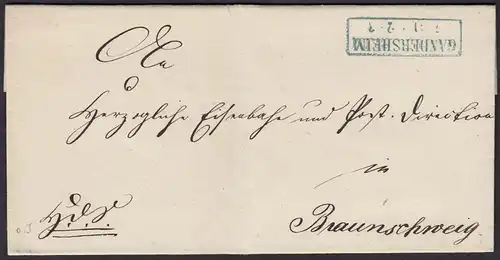 An
GANDERSHEIM
Herzogliche Eisenbahn und Post-Direction
in
Braunschweig.
H.d.S.